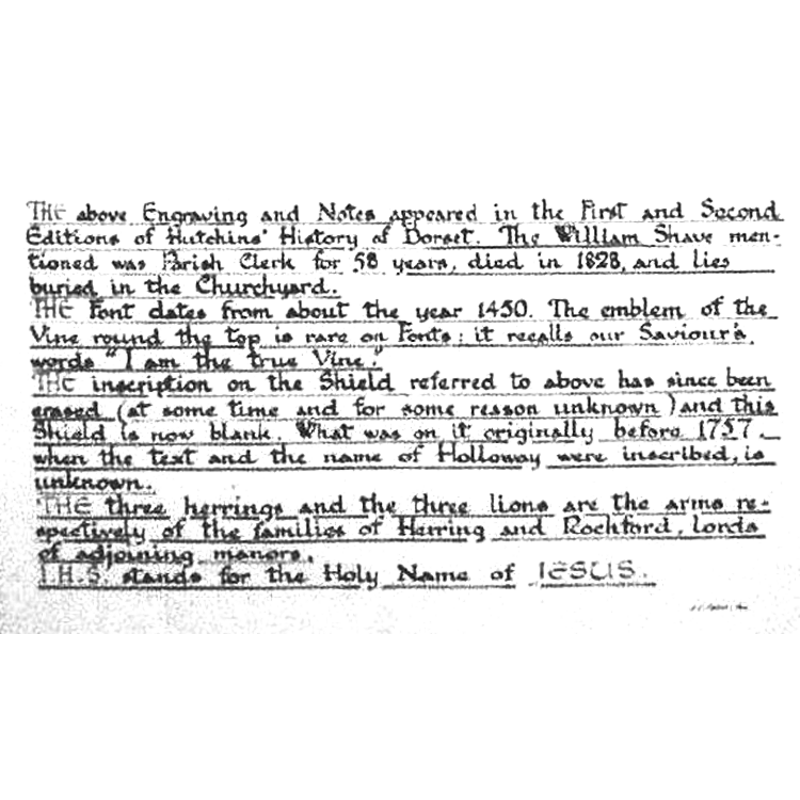 THE above Engraving and Notes appeared in the First and Second
Editions of Hutchins' History of Dorset. The William Shave men-
tioned was Parish Clerk for 58 years, died in 1828, and lies
buried in the Churchyard.
THE Font dates from about the year 1450. The emblem of the
Vine round the top is rare on Fonts: it recalls our Saviour's
words "I am the true Vine."
THE inscription on the Shield referred to above has since been
erased (at some time and for some reason unknown) and this
Shield is now blank. What was on it originally before 1757,
when the text and the name of Holloway were inscribed, is
unknown.
THE three herrings and the three lions are the arms re-
spectively of the families of Herring and Rochford, lords
of adjoining manors.
I.H.S. stands for the Holy Name of IESUS.